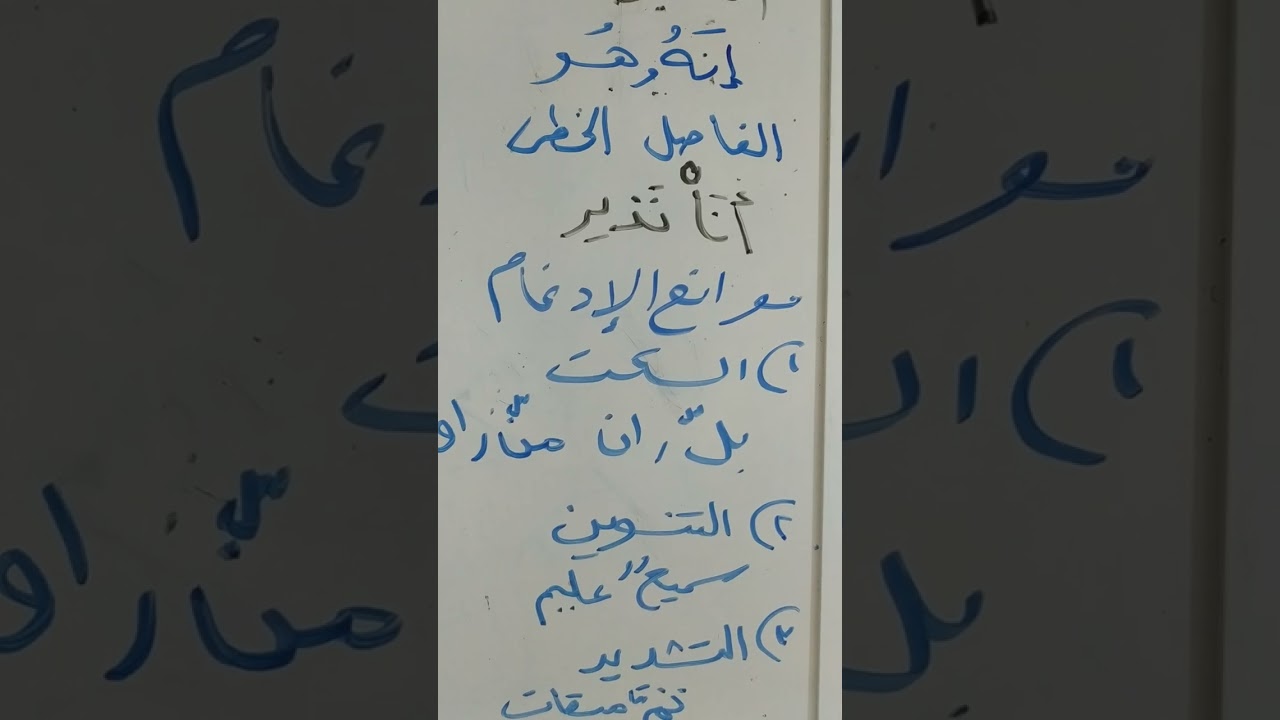 إنَهُ وهُو
الفاصل الخطى
أنَاْ نَذير
موانع الإدغام
١) السكت
بلّ ران منّ راق
٢) التنوين
سميعٌ عليم
٣) التشديد
فتمَّ ميقات